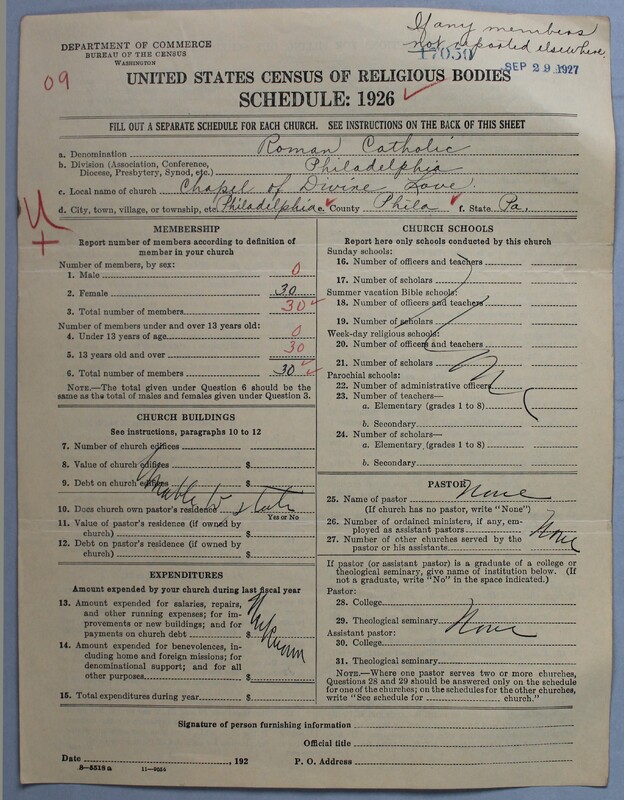 If any members
not reported elsewhere.
DEPARTMENT OF COMMERCE
BUREAU OF THE CENSUS
WASHINGTON
17030
SEP 29 1927
09
UNITED STATES CENSUS OF RELIGIOUS BODIES
SCHEDULE: 1926
FILL OUT A SEPARATE SCHEDULE FOR EACH CHURCH. SEE INSTRUCTIONS ON THE BACK OF THIS SHEET
a. Denomination Roman Catholic
b. Division (Association, Conference,
Diocese, Presbytery, Synod, etc.) Philadelphia
c. Local name of church Chapel of Divine Love
d. City, town, village, or township, etc. Philadelphia e. County Phila f. State Pa.
MEMBERSHIP
Report number of members according to definition of
member in your church
Number of members, by sex:
1. Male 0
2. Female 30
3. Total number of members 30
Number of members under and over 13 years old:
4. Under 13 years of age 0
5. 13 years old and over 30
6. Total number of members 30
NOTE.—The total given under Question 6 should be
the same as the total of males and females given under Question 3.
CHURCH BUILDINGS
See instructions, paragraphs 10 to 12
7. Number of church edifices
8. Value of church edifices $
9. Debt on church edifices $
Unable to state
10. Does church own pastor's residence?
Yes or No
11. Value of pastor's residence (if owned by
church) $
12. Debt on pastor's residence (if owned by
church) $
EXPENDITURES
Amount expended by your church during last fiscal year
13. Amount expended for salaries, repairs,
and other running expenses; for im-
provements or new buildings; and for
payments on church debt $
Unknown
14. Amount expended for benevolences,
including home and foreign missions; for
denominational support; and for all
other purposes $
15. Total expenditures during year $
CHURCH SCHOOLS
Report here only schools conducted by this church
Sunday schools:
16. Number of officers and teachers
17. Number of scholars
Summer vacation Bible schools:
18. Number of officers and teachers
19. Number of scholars
Week-day religious schools:
20. Number of officers and teachers
21. Number of scholars
Parochial schools:
22. Number of administrative officers
23. Number of teachers—
a. Elementary (grades 1 to 8)
b. Secondary
24. Number of scholars—
a. Elementary (grades 1 to 8)
b. Secondary
PASTOR
25. Name of pastor None
(If church has no pastor, write "None")
26. Number of ordained ministers, if any, em-
ployed as assistant pastors
None
27. Number of other churches served by the
pastor or his assistants
If pastor (or assistant pastor) is a graduate of a college or
theological seminary, give name of institution below. (If
not a graduate, write "No" in the space indicated.)
Pastor:
28. College
29. Theological seminary None
Assistant pastor:
30. College
31. Theological seminary
NOTE.—Where one pastor serves two or more churches,
Questions 28 and 29 should be answered only on the schedule
for one of the churches; on the schedules for the other churches,
write "See schedule for church."
Signature of person furnishing information
Official title
Date , 192 P. O. Address
8—5518a 11—9564